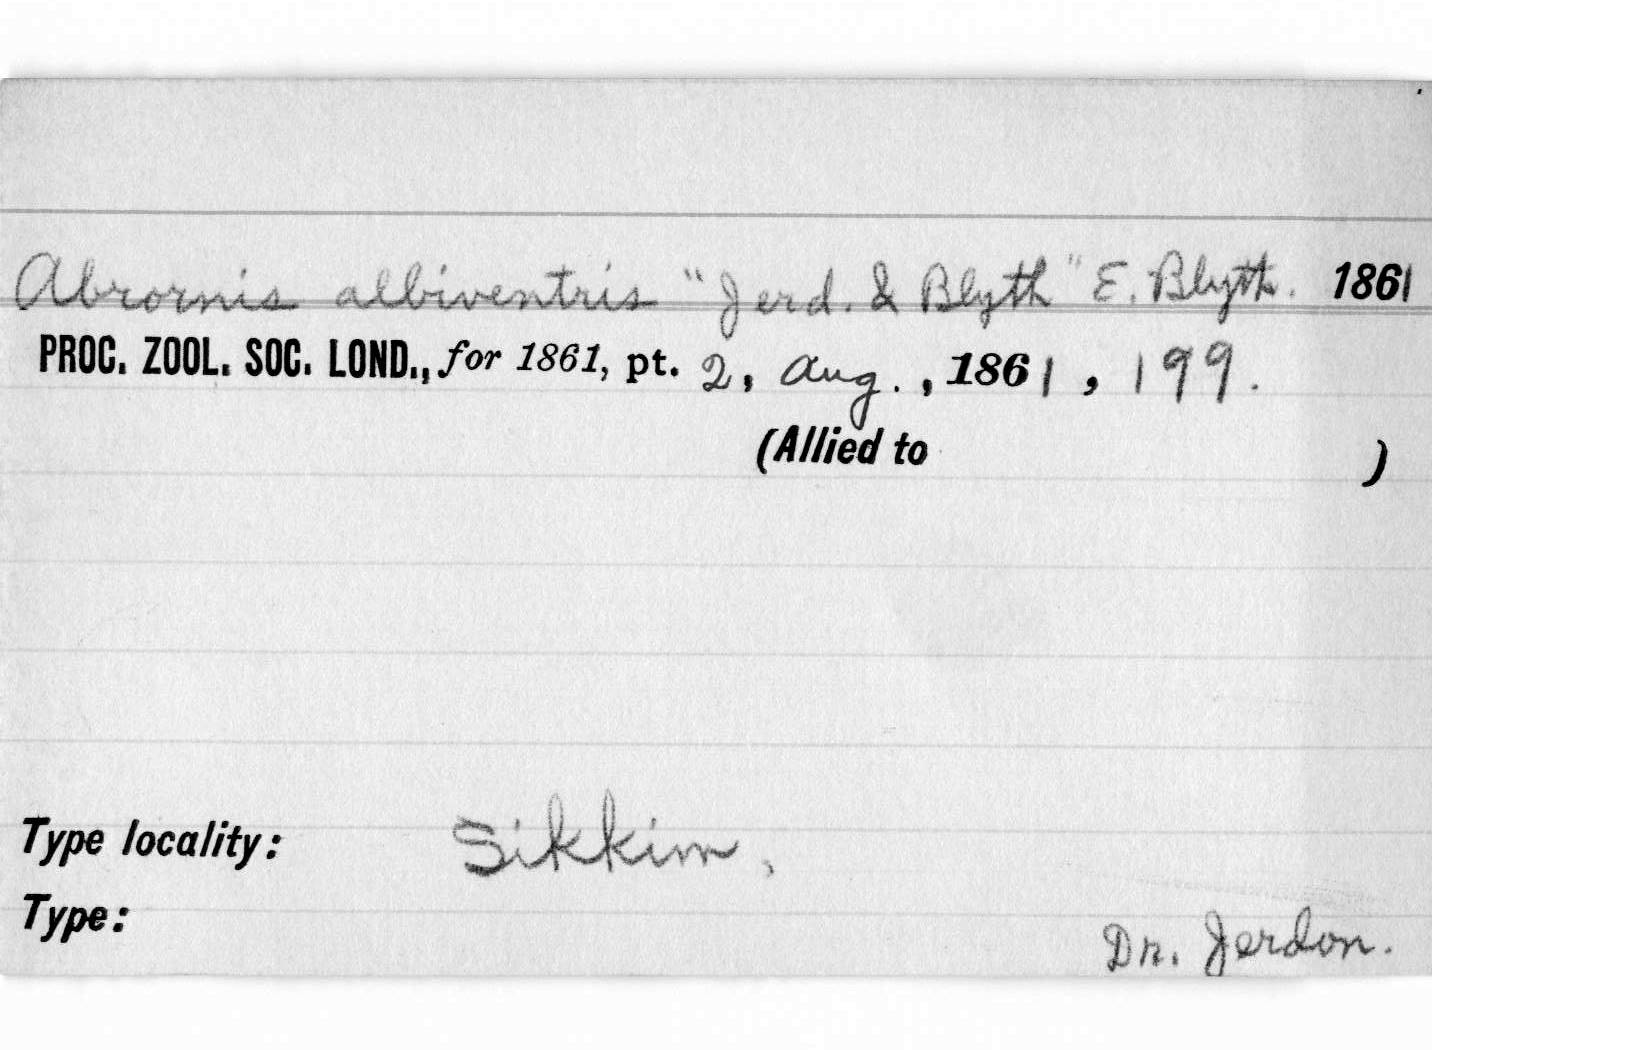 Abrornis albiventris "Jerd. & Blyth" E. Blyth. 1861
PROC. ZOOL. SOC. LOND., for 1861, pt. 2, Aug., 1861, 199.
(Allied to )
Type locality: Sikkim,
Type:
Dr. Jerdon.